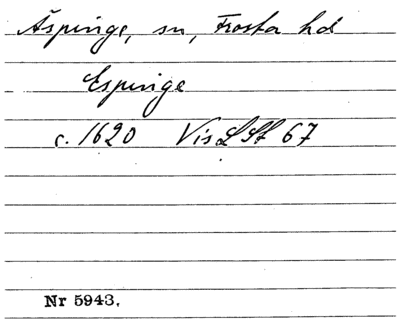 Äspinge, sn, Frosta hd
Espinge
c. 1620 VisLSt 67
Nr 5943.